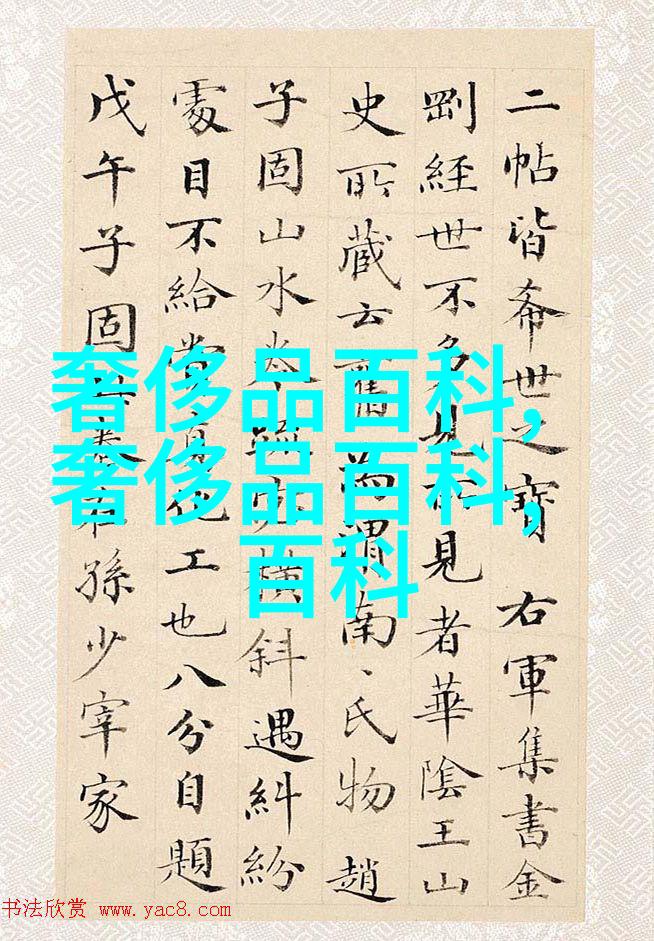 二帖皆希世之寶 右軍集書金
剛經世不多見 見者華陰王山
史所藏云舊為謂南、氏物趙
子固山水卷 橫斜遇糾紛
處目不給當真化工也八分自題
戊午子固 卷在孫少宰家
奢侈品百科,
奢侈品百科,
百科
书法欣赏 www.yac8.com